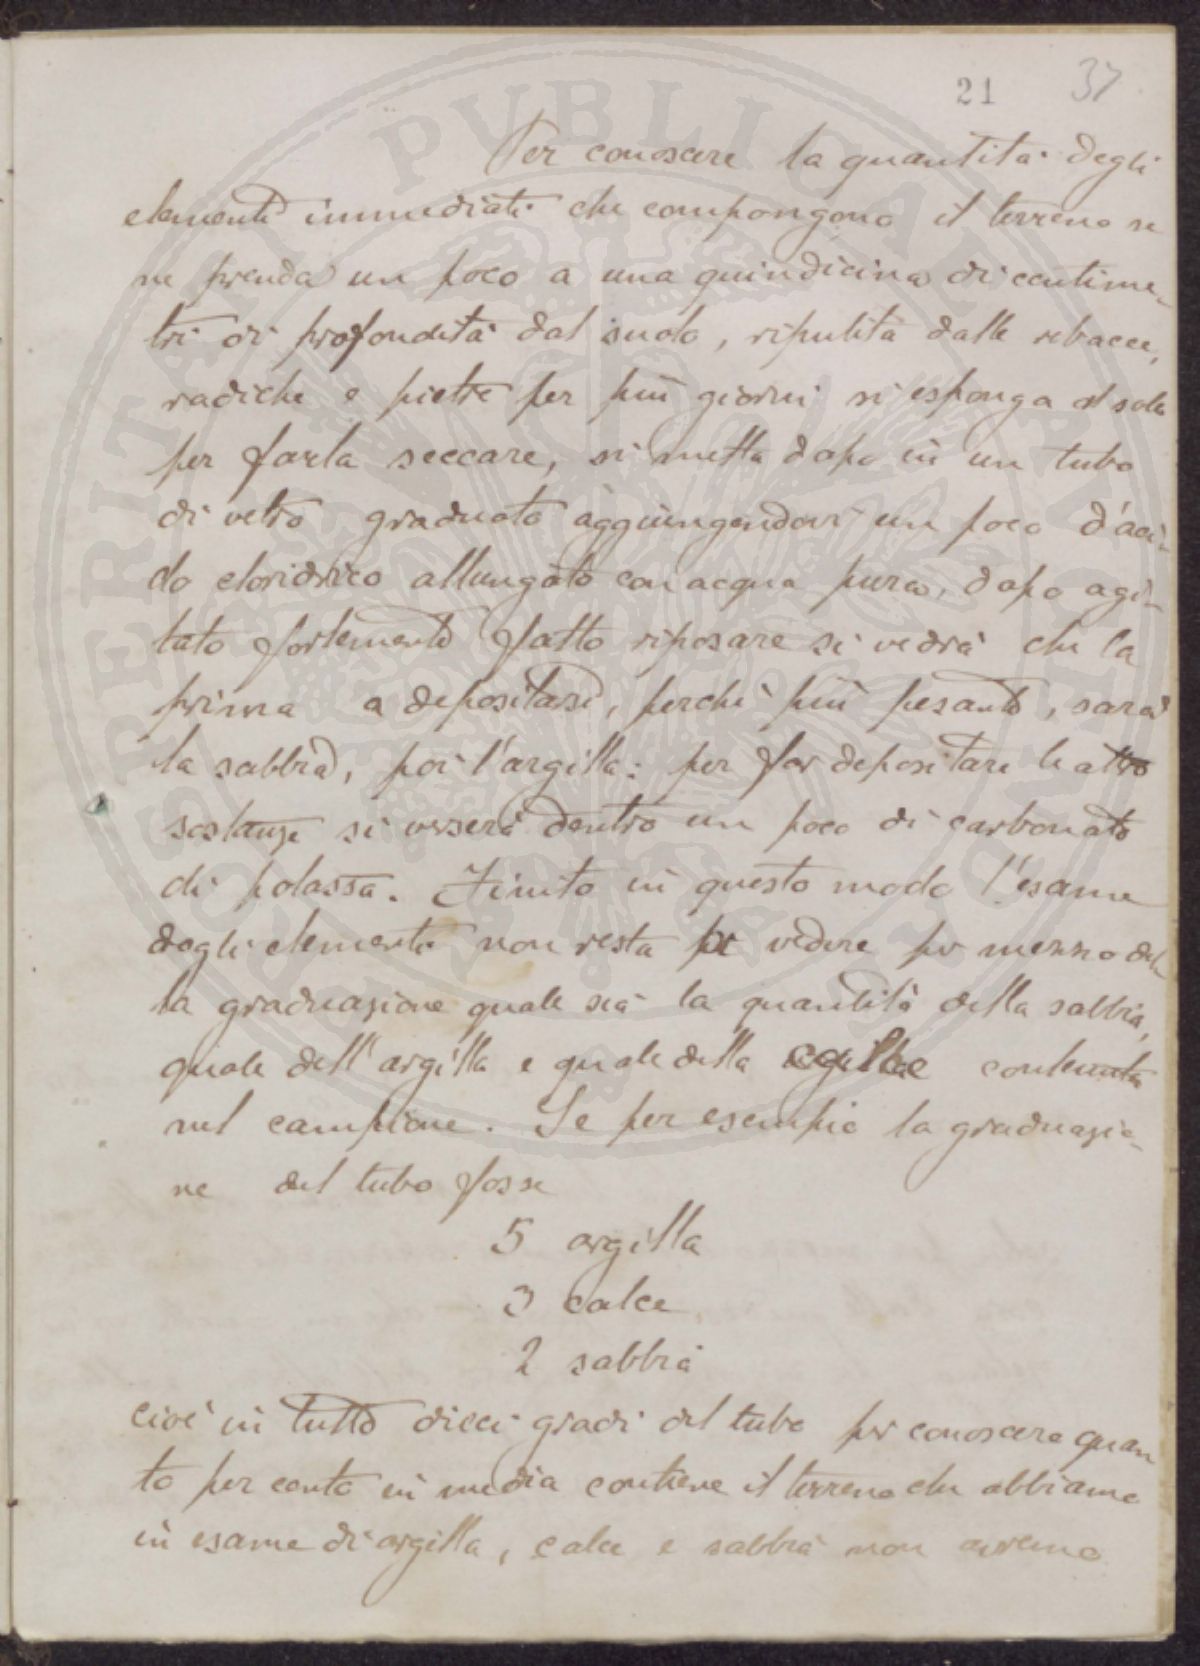 21 37
Per conoscere la quantità degli
elementi immediati che compongono il terreno se
ne prenda un poco a una quindicina di centime-
tri di profondità dal suolo, ripulita dalle erbacce,
radiche e pietre per più giorni si esponga al sole
per farla seccare, si metta dopo in un tubo
di vetro graduato aggiungendovi un poco d'aci-
do cloridrico allungato con acqua pura, dopo agi-
tato fortemente fatto riposare si vedrà che la
prima a depositarsi, perchè più pesante, sarà
la sabbia, poi l'argilla: per far depositare le altre
sostanze si verserà dentro un poco di carbonato
di potassa. Finito in questo modo l'esame
degli elementi non resta vedere per mezzo del
la graduazione quale sia la quantità della sabbia,
quale dell'argilla e quale della contenuta
nel campione. Se per esempio la graduazio-
ne del tubo fosse
5 argilla
3 calce
2 sabbia
cioè in tutto dieci gradi del tubo per conoscere quan
to per cento in media contiene il terreno che abbiamo
in esame di argilla, calce e sabbia non avremo